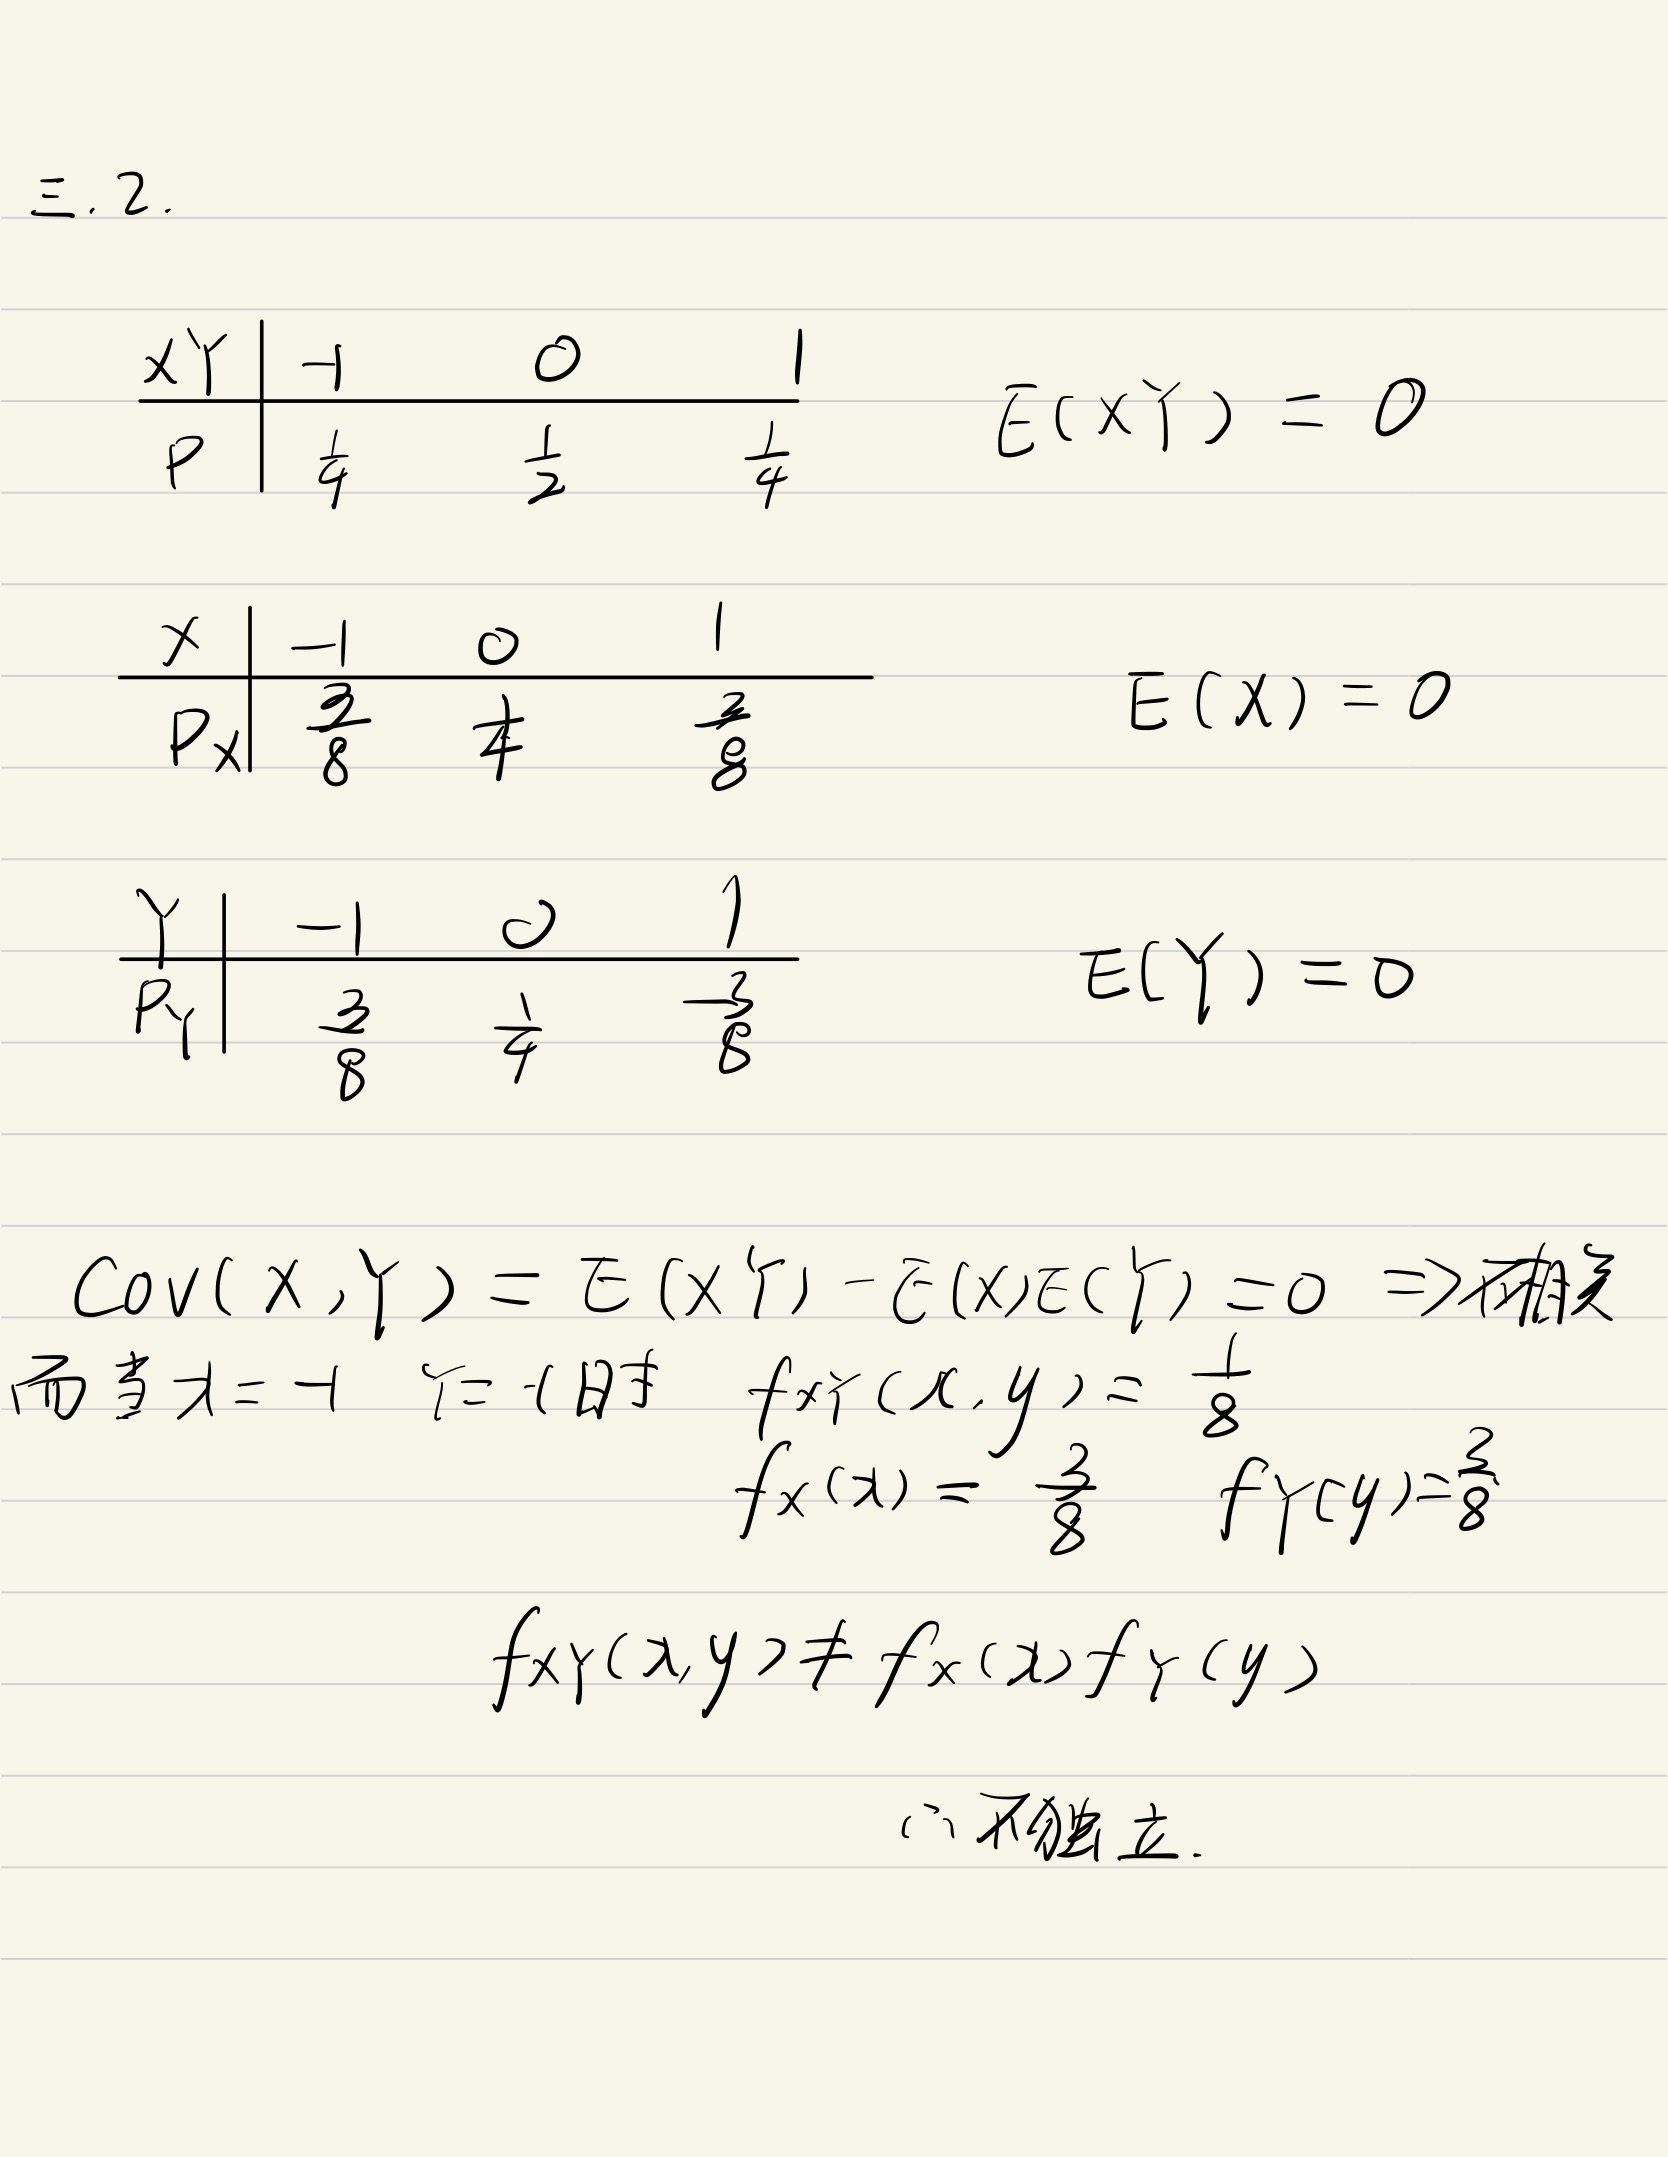 三.2.
XY | -1 0 1
P | 1/4 1/2 1/4 E(XY) = 0
X | -1 0 1
P_X | 3/8 1/4 3/8 E(X) = 0
Y | -1 0 1
P_Y | 3/8 1/4 3/8 E(Y) = 0
Cov(X,Y) = E(XY) - E(X)E(Y) = 0 ⇒ 不相关
而当x=-1 Y=-1时 f_XY(x,y) = 1/8
f_X(x) = 3/8 f_Y(y) = 3/8
f_XY(x,y) ≠ f_X(x)f_Y(y)
∴不独立.